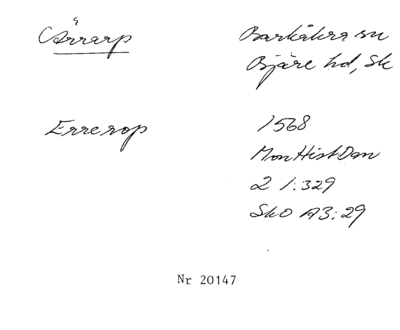 Ärrarp
Barkåkra sn
Bjäre hd, Sk
Errerop
1568
MonHistDan
2 1:329
SkO A3:29
Nr 20147